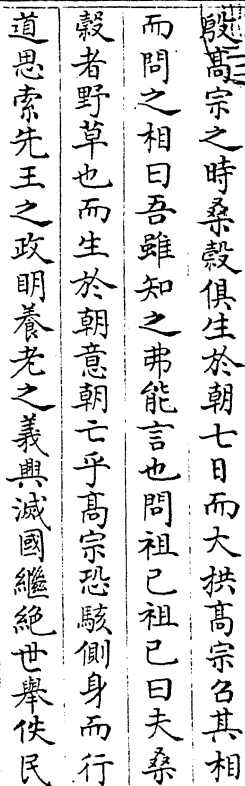 殷髙宗之時桑穀俱生於朝七日而大拱髙宗召其相
而問之相曰吾雖知之弗能言也問祖己祖己曰夫桑
穀者野草也而生於朝意朝亡乎髙宗恐駭側身而行
道思索先王之政明養老之義興滅國繼絶世舉佚民